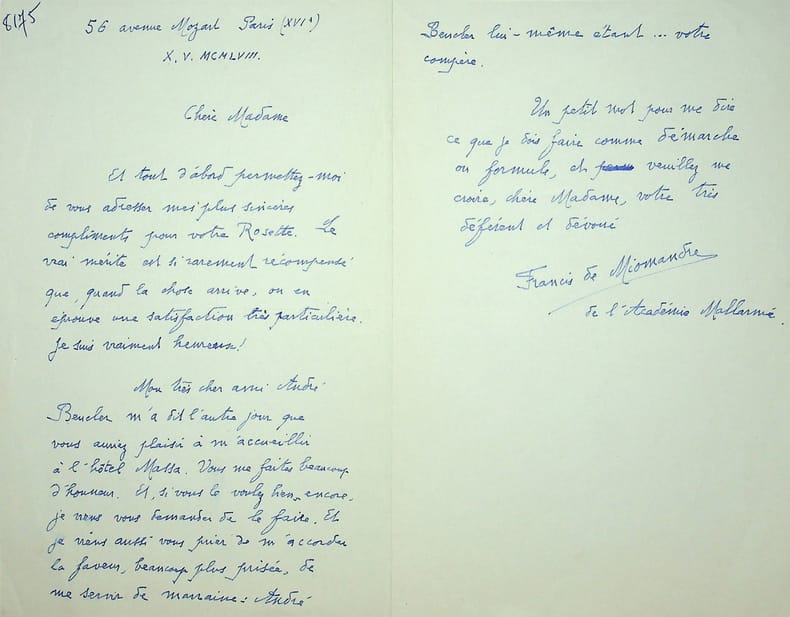 8175
56 avenue Mozart Paris (XVIe)
X. V. MCMLVIII.
Chère Madame
Et tout d'abord permettez-moi
de vous adresser mes plus sincères
compliments pour votre Rosette. Le
vrai mérite est si rarement récompensé
que, quand la chose arrive, on en
éprouve une satisfaction très particulière.
Je suis vraiment heureux!
Mon très cher ami André
Beucler m'a dit l'autre jour que
vous auriez plaisir à m'accueillir
à l'hôtel Massa. Vous me faites beaucoup
d'honneur. Et, si vous le voulez bien encore,
je viens vous demander de le faire. Et
je viens aussi vous prier de m'accorder
la faveur, beaucoup plus prisée, de
me servir de marraine: André
Beucler lui-même étant ... votre
compère.
Un petit mot pour me dire
ce que je dois faire comme démarche
ou formule, et veuillez me
croire, chère Madame, votre très
déférent et dévoué
Francis de Miomandre
de l'Académie Mallarmé.